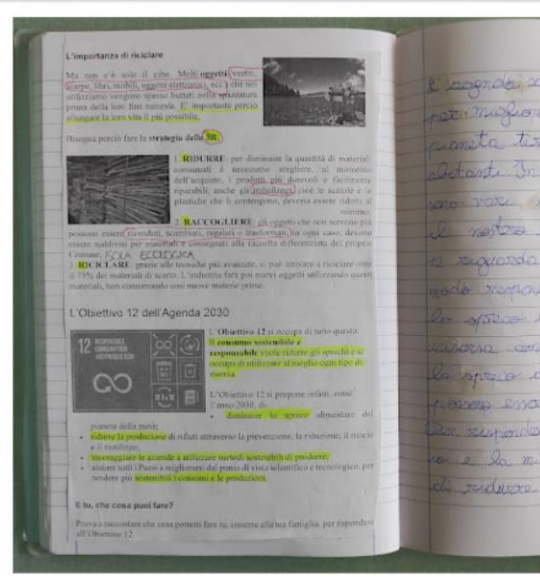 L'importanza di riciclare
Ma non c'è solo il cibo. Molti oggetti (vestiti,
scarpe, libri, mobili, oggetti elettronici, ecc.) che noi
utilizziamo vengono spesso buttati nella spazzatura
prima della loro fine naturale. E' importante perciò
allungare la loro vita il più possibile.
Bisogna perciò fare la strategia delle 3R:
1. RIDURRE: per diminuire la quantità di materiali
consumati è necessario scegliere, al momento
dell'acquisto, i prodotti più durevoli e facilmente
riparabili; anche gli imballaggi, cioè le scatole e la
plastiche che li contengono, devono essere ridotti al
minimo.
2. RACCOGLIERE: gli oggetti che non servono più
possono essere rivenduti, scambiati, regalati o trasformati; in ogni caso, devono
essere suddivisi per materiali e consegnati alla raccolta differenziata del proprio
Comune; ISOLA ECOLOGICA
3. RICICLARE: grazie alle tecniche più avanzate, si può arrivare a riciclare oltre
il 75% dei materiali di scarto. L'industria farà poi nuovi oggetti utilizzando questi
materiali, non consumando così nuove materie prime.
L'Obiettivo 12 dell'Agenda 2030
12 RESPONSIBLE
CONSUMPTION
AND PRODUCTION
L'Obiettivo 12 si occupa di tutto questo.
Il consumo sostenibile e
responsabile vuole ridurre gli sprechi e si
occupa di utilizzare al meglio ogni tipo di
risorsa.
L'Obiettivo 12 si propone infatti, entro
l'anno 2030, di:
• diminuire lo spreco alimentare del
pianeta della metà;
• ridurre la produzione di rifiuti attraverso la prevenzione, la riduzione, il riciclo
e il riutilizzo;
• incoraggiare le aziende a utilizzare metodi sostenibili di produrre;
• aiutare tutti i Paesi a migliorare dal punto di vista scientifico e tecnologico, per
rendere più sostenibili i consumi e le produzioni.
E tu, che cosa puoi fare?
Prova a raccontare che cosa potresti fare tu, insieme alla tua famiglia, per rispondere
all'Obiettivo 12.
per
pianeta
abitanti. In
sono
il nostro
riguarda
modo
lo spreco
risorsa
lo spreco
possono
Per
e la
di ridurre